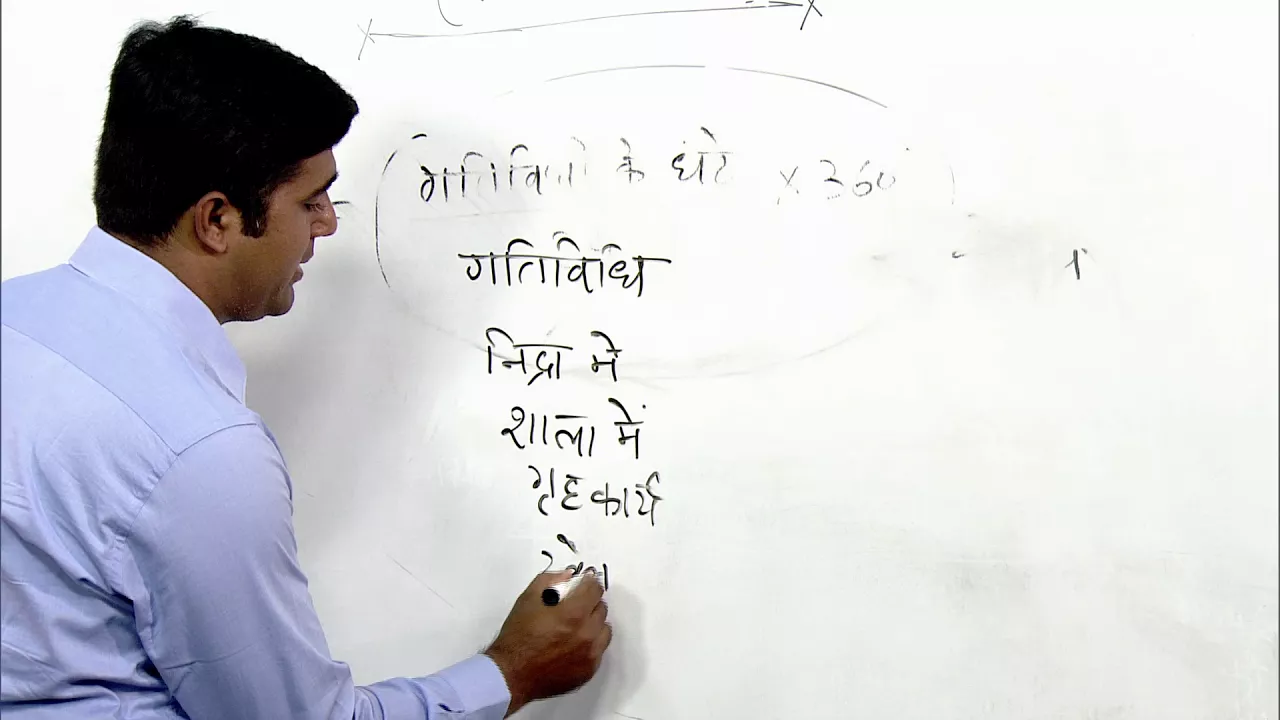 गतिविधी के घंटे × 360°
गतिविधि
निद्रा मे
शाला में
गृहकार्य